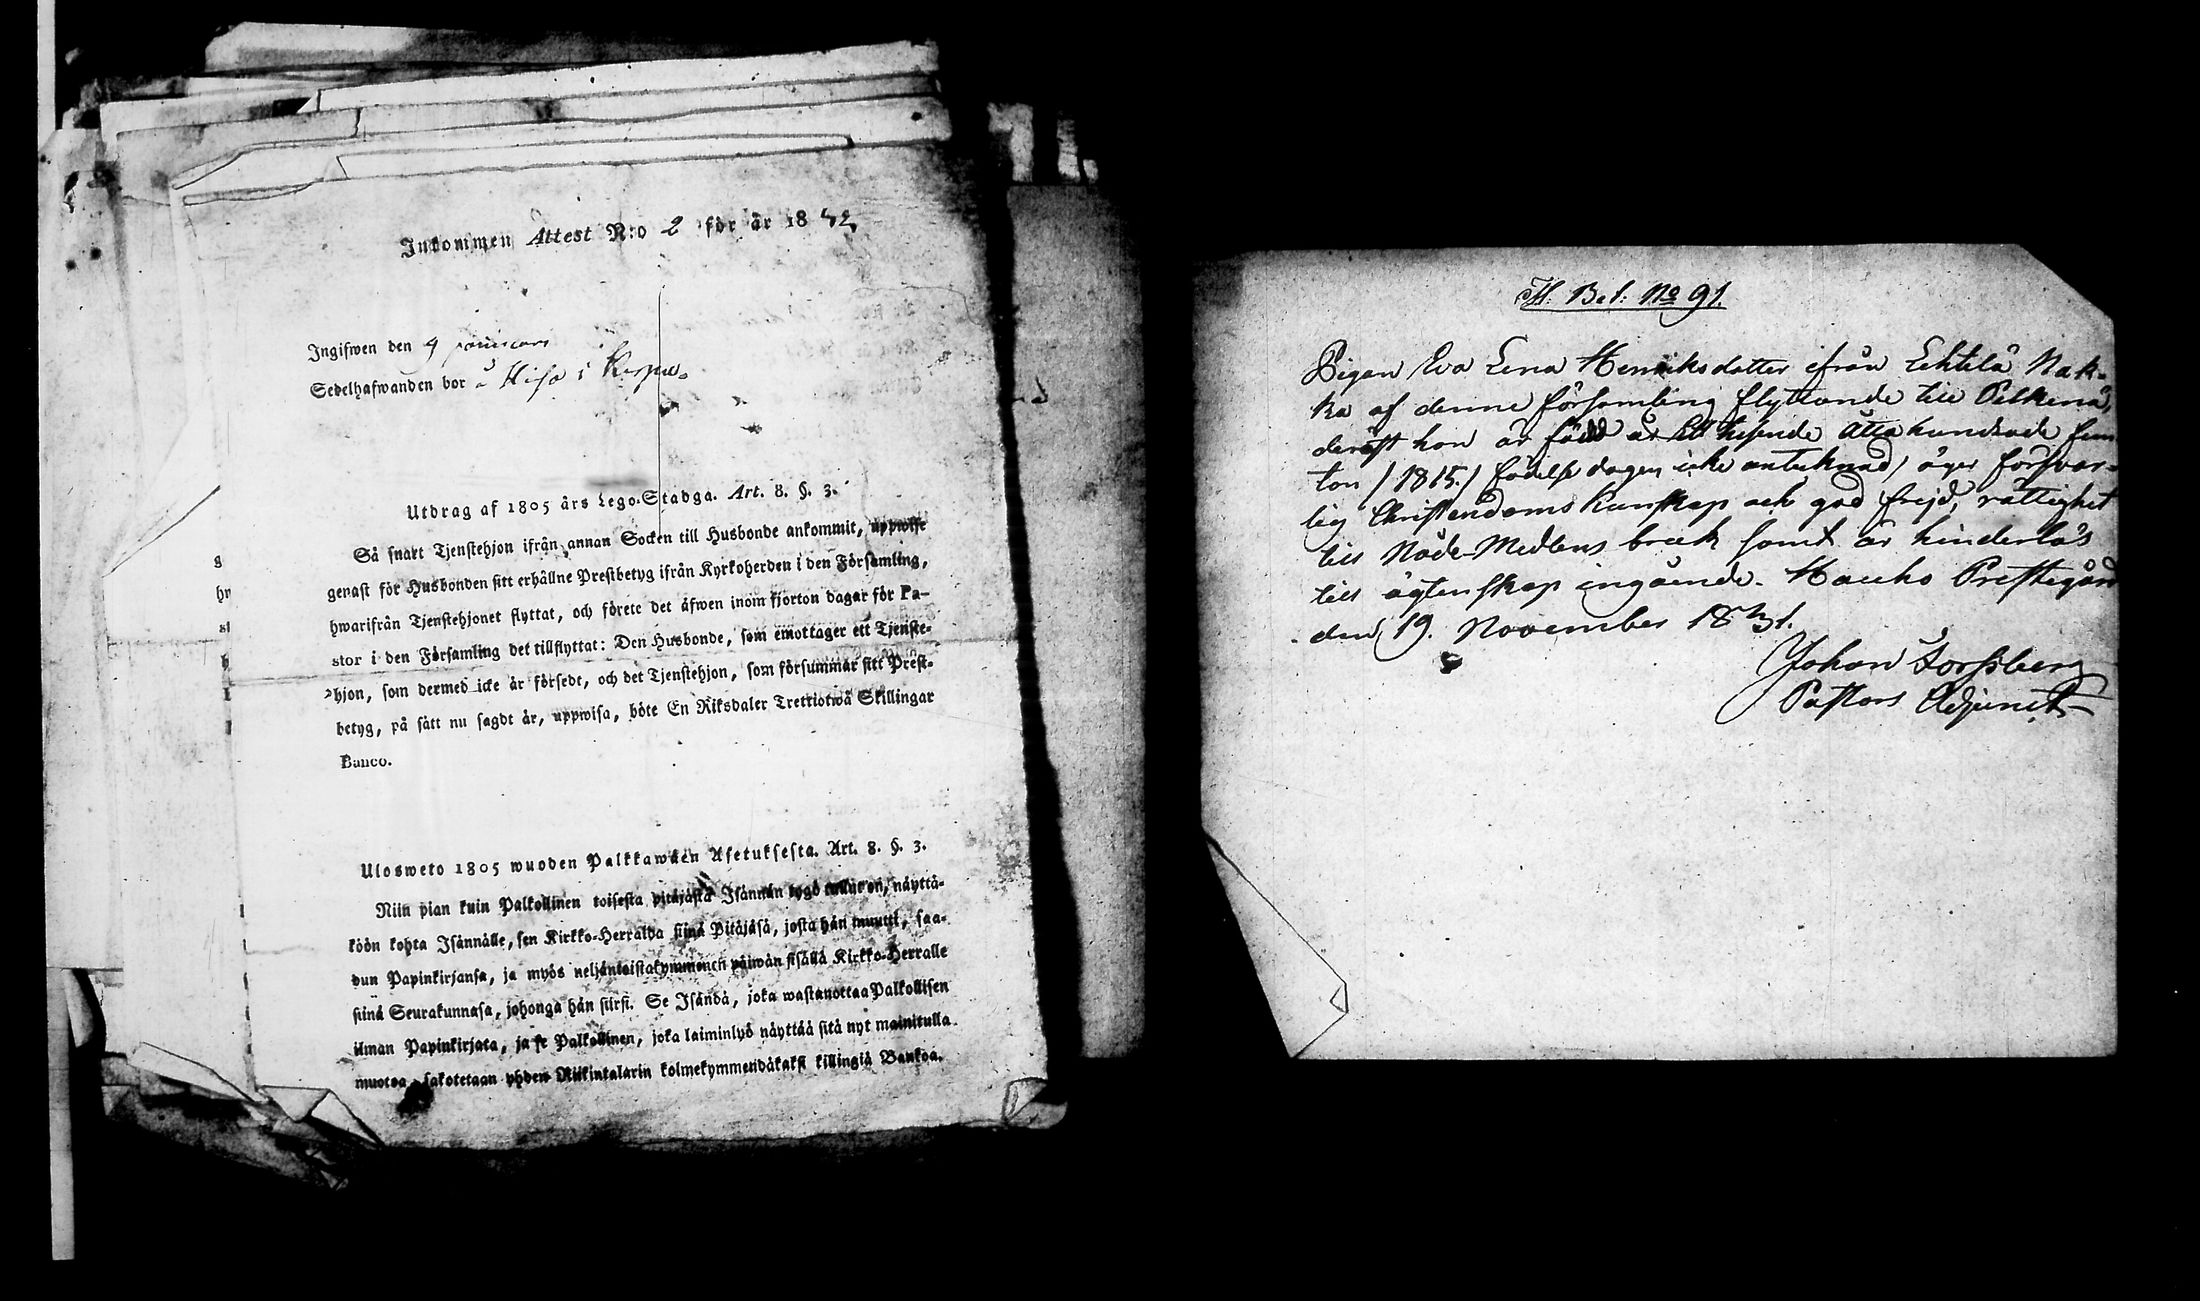 Inkommen Attest N:o 2 för år 1842
Ingifwen den 9 januari
Sedelhafwanden bor å Hifa i
Utdrag af 1805 års Lego-Stadga. Art. 8. §. 3.
Så snart Tjenstehjon ifrån annan Socken till Husbonde ankommit, uppwise
genast för Husbonden sitt erhållne Prestbetyg ifrån Kyrkoherden i den Församling,
hwarifrån Tjenstehjonet flyttat, och förete det äfwen inom fjorton dagar för Pa-
stor i den Församling det tillflyttat: Den Husbonde, som emottager ett Tjenste-
hjon, som dermed icke är försedt, och det Tjenstehjon, som försummar sitt Prest-
betyg, på sätt nu sagdt är, uppwisa, böte En Riksdaler Trettiotwå Skillingar
Banco.
Ulosweto 1805 wuoden Palkkawäen Asetuksesta. Art. 8. §. 3.
Niin pian kuin Palkollinen toisesta pitäjästä Isännän tygö tullut on, näyttä-
köön kohta Isännälle, sen Kirkko-Herralda siinä Pitäjäsä, josta hän muutti, saa-
dun Papinkirjansa, ja myös neljäntoistakymmenen päiwän sisällä Kirkko-Herralle
siinä Seurakunnasa, johonga hän siirsi. Se Isändä, joka wastanottaa Palkollisen
ilman Papinkirjata, ja se Palkollinen, joka laiminlyö näyttää sitä nyt mainitulla
muotoa, sakotetaan yhden Riikintalarin kolmekymmendäkaksi killingiä Bankoa.
g
hr
st
H: Bet: No 91.
Pigan Eva Lena Henriksdotter ifrån Lehtilä Nak-
ka af denne församling flyttande till Pälkenä,
deräst hon är född år Ett tusende Åtta hundrade fem
ton /1815./ födelse dagen icke anteknad, äger försvar-
lig Christendoms kunskap och god frejd, rättighet
till Nåde-Medlens bruk samt är hinderlös
till ägtenskap ingående. Hauho Prestegård
den 19. November 1831.
Johan Forssberg
Pastors Adjunct